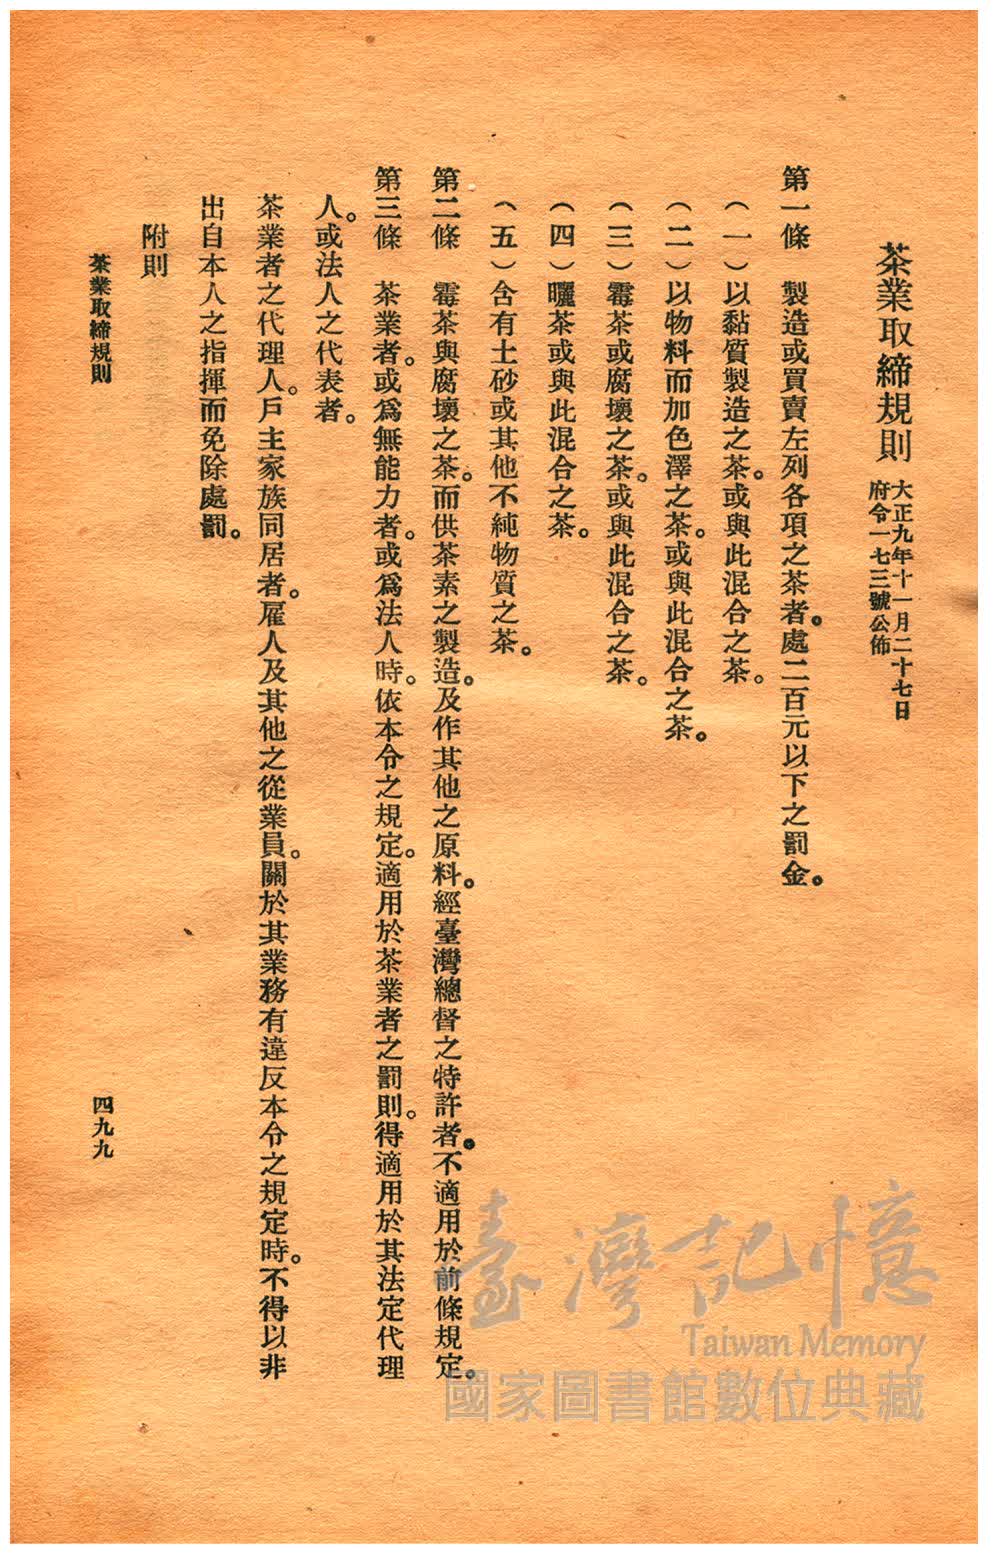 茶業取締規則
大正九年十一月二十七日
府令一七三號公佈
第一條　製造或買賣左列各項之茶者。處二百元以下之罰金。
（一）以黏質製造之茶。或與此混合之茶。
（二）以物料而加色澤之茶。或與此混合之茶。
（三）霉茶或腐壞之茶。或與此混合之茶。
（四）曬茶或與此混合之茶。
（五）含有土砂或其他不純物質之茶。
第二條　霉茶與腐壞之茶。而供茶素之製造。及作其他之原料。經臺灣總督之特許者。不適用於前條規定。
第三條　茶業者。或爲無能力者。或爲法人時。依本令之規定。適用於茶業者之罰則。得適用於其法定代理
人。或法人之代表者。
茶業者之代理人。戶主家族同居者。雇人及其他之從業員。關於其業務有違反本令之規定時。不得以非
出自本人之指揮而免除處罰。
附則
茶業取締規則
四九九
臺灣記憶
Taiwan Memory
國家圖書館數位典藏